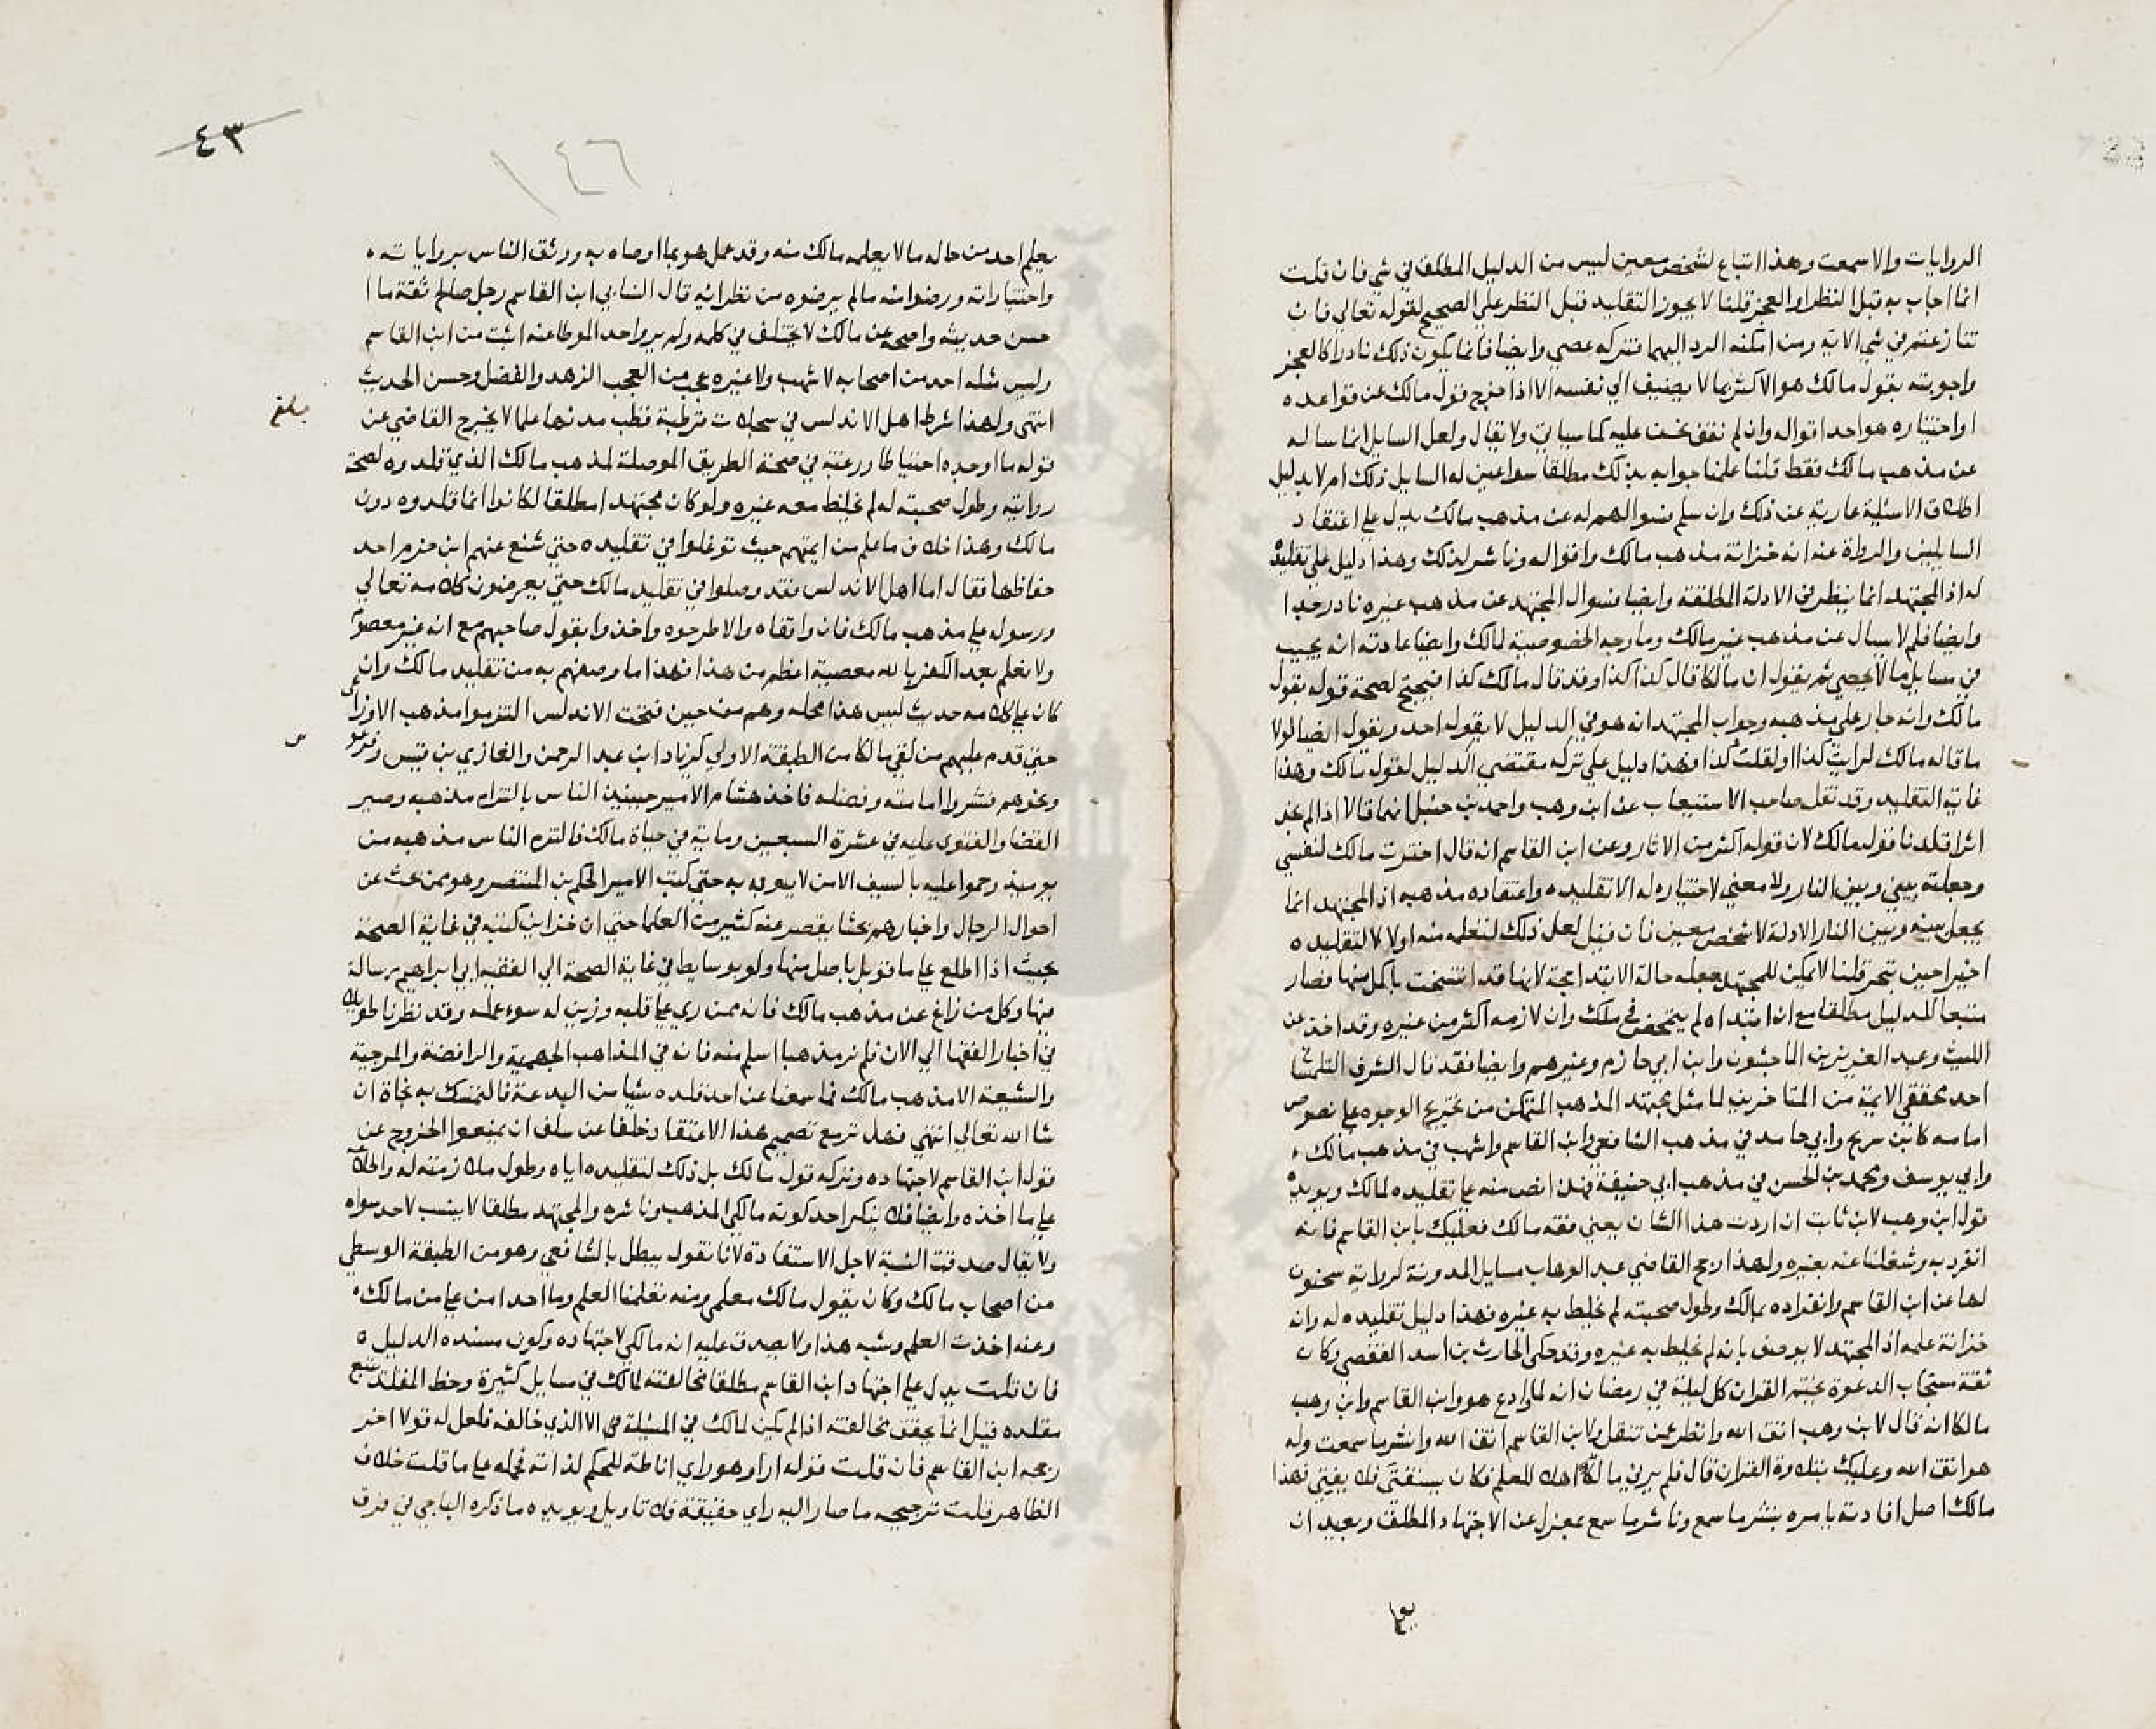 الروايات والا سمعت وهذا اتباع لشخص معين ليس من الدليل المطلق في شي فان قلت
انما اجاب به قبل النظر او العجز قلنا لا يجوز التقليد قبل النظر علي الصحيح لقوله تعالي فان
تنازعتم في شي الاية ومن امكنه الرد اليهما فتركه عصي وايضا فانما يكون ذلك نادرا كالعجز
واجوبته بقول مالك هو الاكثر بما لا يضيف الي نفسه الا اذا خرج قول مالك عن قواعده
او اختياره هو احد اقواله وان لم نقف نحن عليه كما سياتي ولا يقال ولعل السايل انما ساله
عن مذهب مالك فقط قلنا علمنا جوابه بذلك مطلقا سوا عين له السايل ذلك ام لا بدليل
اطلاق الاسئلة عارية عن ذلك وان سلم فسوالهم له عن مذهب مالك يدل علي اعتقاد
السايلين والرواة عنه انه خزانة مذهب مالك واقواله وناشر لذلك وهذا دليل علي تقليده
له اذ المجتهد انما ينظر في الادلة المطلقة وايضا فسوال المجتهد عن مذهب غيره نادر جدا
وايضا فلم لا يسال عن مذهب غير مالك وما وجه الخصوصية لمالك وايضا عادته انه يجيب
في مسايل ما لا يحصي ثم يقول ان مالكا قال كذا كذا وقد قال مالك كذا فيحتج لصحة قوله بقول
مالك وانه جار علي مذهبه وجواب المجتهد انه هو في الدليل لا بقول احد ويقول ايضا لولا
ما قاله مالك لرايت كذا او لقلت كذا وهذا دليل علي تركه مقتضي الدليل لقول مالك وهذا
غاية التقليد وقد نقل صاحب الاستيعاب عن ابن وهب واحمد بن حنبل انهما قالا اذا لم نجد
اثرا قلدنا قول مالك لان قوله اكثر من الاثار وعن ابن القاسم انه قال اخترت مالك لنفسي
وجعلته بيني وبين النار ولا معني لاختياره له الا تقليده واعتقاده مذهبه اذ المجتهد انما
يجعل بينه وبين النار الادلة لا شخص معين فان قيل لعل ذلك لتعلمه منه اولا لا لتقليده
اخيرا حين تبحر قلنا لا يمكن للمجتهد جعله حالة الابتدا حجة لانها قد انتسخت باكمل منها فصار
متبعا للدليل مطلقا مع ان ابتداه لم يتمحض في ملك وان لازمه اكثر من غيره وقد اخذ عن
الليث وعبد العزيز بن الماجشون وابن ابي حازم وغيرهم وايضا فقد قال الشرف التلمسا
احد محققي الايمة من المتاخرين لما مثل مجتهد المذهب المتمكن من تخريج الوجوه علي نصوص
امامه كابن سريج وابي حامد في مذهب الشافعي وابن القاسم واشهب في مذهب مالك
وابي يوسف ومحمد بن الحسن في مذهب ابي حنيفة فهذا نص منه علي تقليده لمالك ويويده
قول ابن وهب لابن ثابت ان اردت هذا الشان يعني فقه مالك فعليك بابن القاسم فانه
انفرد به وشغلنا عنه بغيره ولهذا رجح القاضي عبد الوهاب مسايل المدونة لرواية سحنون
لها عن ابن القاسم وانفراده بمالك وطول صحبته لم يخلط به غيره فهذا دليل تقليده له وانه
خزانة علمه اذ المجتهد لا يوصف بانه لم يخلط به غيره وقد حكي الحارث بن اسد القفصي وكان
ثقة مستجاب الدعوة يختم القران كل ليلة في رمضان انه لما وادع هو وابن القاسم وابن وهب
مالكا انه قال لابن وهب اتق الله وانظر عمن تنقل ولابن القاسم اتق الله وانشر ما سمعت وله
هو اتق الله وعليك بتلاوة القران قال فلم يرني مالك اهلا للعلم فكان يستفتي فلا يفتي فهذا
مالك اصل افادته يامره بنشر ما سمع وناشر ما سمع بمعزل عن الاجتهاد المطلق وبعيد ان
٤٣
١٤٦
يعلم احد من حاله ما لا يعلمه مالك منه وقد عمل هو بما اوصاه به ووثق الناس برواياته
واختياراته ورضوا منه ما لم يرضوه من نظرايه قال النسايي ابن القاسم رجل صالح ثقة ما
حسن حديثه واصحه عن مالك لا يختلف في كلمه ولم يرو احد الموطا عنه اثبت من ابن القاسم
وليس مثله احد من اصحابه لا شهب ولا غيره عجب من العجب الزهد والفضل وحسن الحديث
انتهي ولهذا شرط اهل الاندلس في سجلات قرطبة قطب مدنها علما لا يخرج القاضي عن
قوله ما وجده احتياطا ورغبة في صحة الطريق الموصلة لمذهب مالك الذي قلدوه لصحة
روايته وطول صحبته له لم يخلط معه غيره ولو كان مجتهدا مطلقا لكانوا انما قلدوه دون
مالك وهذا خلاف ما علم من ايمتهم حيث توغلوا في تقليده حتي شنع عنهم ابن حزم احد
حفاظها فقال اما اهل الاندلس فقد وصلوا في تقليد مالك حتي يعرضون كلامه تعالي
ورسوله علي مذهب مالك فان وافقاه والا طرحوه واخذوا بقول صاحبهم مع انه غير معصوم
ولا نعلم بعد الكفر بالله معصية اعظم من هذا فهذا ما وصفهم به من تقليد مالك وان
كان علي كلامه حديث ليس هذا محله وهم من حين فتحت الاندلس التزموا مذهب الاوزاعي
حتي قدم عليهم من لقي مالكا من الطبقة الاولي كزياد ابن عبد الرحمن والغازي بن قيس وقرعوس
ونحوهم فنشروا امامته وفضله فاخذ هشام الامير حينيذ الناس بالتزام مذهبه وصير
القضا والفتوي عليه في عشرة السبعين وماية في حياة مالك فالتزم الناس مذهبه من
يوميذ وحموا عليه بالسيف الا من لا يوبه به حتي كتب الامير الحكم بن المنتصر وهو ممن بحث عن
احوال الرجال واخبارهم بحثا يقصر عنه كثير من العلما حتي ان خزاين كتبه في غاية الصحة
بحيث اذا اطلع علي ما قوبل باصل منها ولو بوسايط في غاية الصحة الي الفقيه ابي ابراهيم برسالة
منها وكل من زاغ عن مذهب مالك فانه ممن رين علي قلبه وزين له سوء عمله وقد نظرنا طويلا
في اخبار الفقها الي الان فلم نر مذهبا اسلم منه فان في المذاهب الجهمية والرافضة والمرجية
والشيعة الا مذهب مالك فما سمعنا عن احد قلده شيا من البدعة فالتمسك به نجاة ان
شا الله تعالي انتهي فهل تري مع تصميم هذا الاعتقاد خلفا عن سلف ان يمنعوا الخروج عن
قول ابن القاسم لاجتهاده وتركه قول مالك بل ذلك لتقليده اياه وطول ملازمته له واطلاعه
علي ما اخذه وايضا فلا ينكر احد كونه مالكي المذهب وناشره والمجتهد مطلقا لا ينسب لاحد سواه
ولا يقال صدقت النسبة لاجل الاستفادة لانا نقول يبطل بالشافعي وهو من الطبقة الوسطي
من اصحاب مالك وكان يقول مالك معلمي ومنه تعلمنا العلم وما احد امن علي من مالك
وعنه اخذت العلم وشبه هذا ولا يصدق عليه انه مالكي لاجتهاده وكون مسنده الدليل
فان قلت يدل علي اجتهاد ابن القاسم مطلقا مخالفته لمالك في مسايل كثيرة وحظ المقلد تتبع
مقلده قيل انما يحقق مخالفته اذا لم يكن لمالك في المسيلة الا الذي خالفه فلعل له قولا اخر
رجحه ابن القاسم فان قلت قوله اراه هو راي اناطة للحكم لذاته فحمله علي ما قلت خلاف
الظاهر قلت ترجيحه ما صار اليه راي حقيقة فلا تاويل ويويده ما ذكره الباجي في فرق